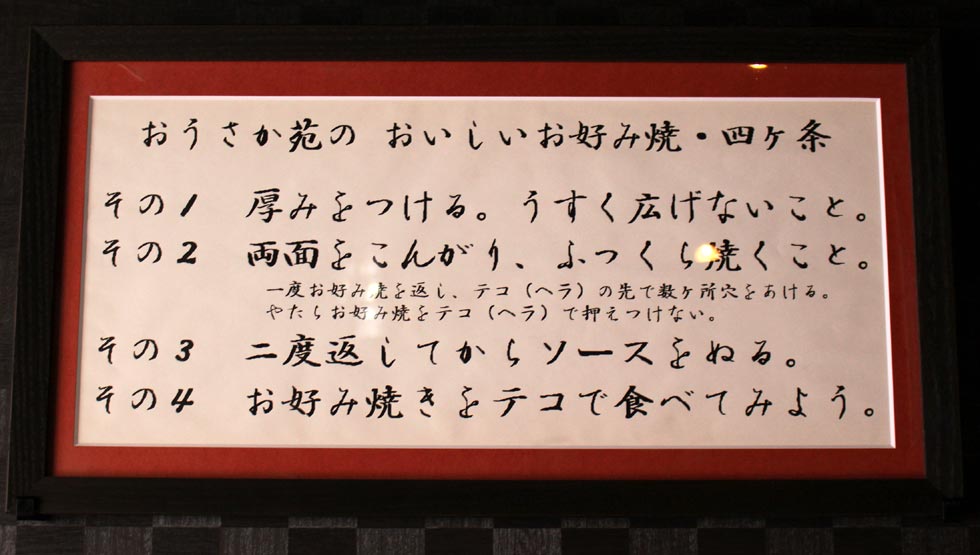 おうさか苑の おいしいお好み焼・四ヶ条
その1 厚みをつける。うすく広げないこと。
その2 両面をこんがり、ふっくら焼くこと。
一度お好み焼を返し、テコ（ヘラ）の先で数ヶ所穴をあける。
やたらお好み焼をテコ（ヘラ）で押えつけない。
その3 二度返してからソースをぬる。
その4 お好み焼きをテコで食べてみよう。